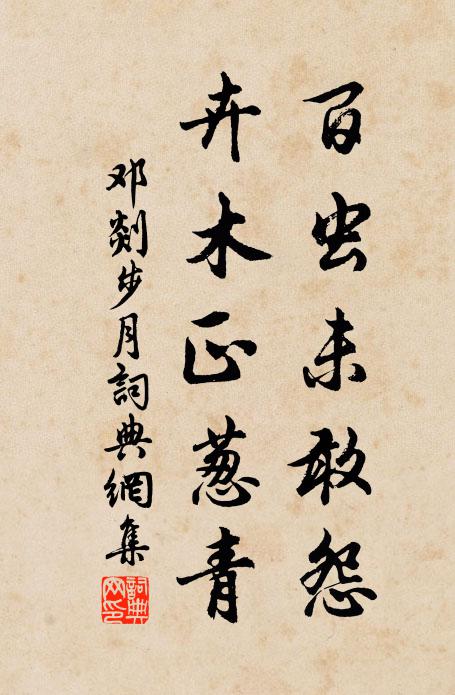 百虫未敢怨
卉木正葱青
邓剡步月詞典網集
詞典网印